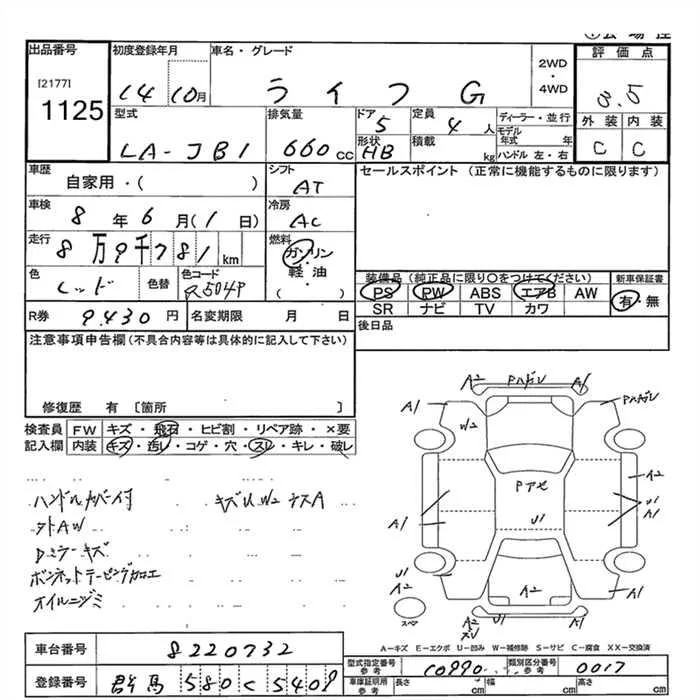 出品番号 初度登録年月 車名・グレード 評価点
[2177]
1125
14 10月 ライフ G 2WD・4WD 3.5
型式 排気量 ドア 定員 ディーラー・並行 外装 内装
LA-JB1 660cc 5 4人 モデル年式 年 C C
形状 HB 積載 kg ハンドル 左・右
車歴 シフト セールスポイント (正常に機能するものに限ります)
自家用・( ) AT
車検 冷房
8年6月(1日) AC
走行 燃料
8万9千781km ガソリン
軽油
( )
色 色替 色コード 装備品(純正品に限り○をつけてください) 新車保証書
レッド R504P PS PW ABS エアB AW 有・無
SR ナビ TV カワ
R券 9,430円 名変期限 月 日 後日品
注意事項申告欄(不具合内容等は具体的に記入して下さい)
修復歴 有 〔箇所 〕
検査員 FW キズ・飛石・ヒビ割・リペア跡・×要
記入欄 内装 キズ・汚レ・コゲ・穴・スレ・キレ・破レ
ハンドルカバー付
外AW
Dミラーキズ
ボンネットテーピング加工
オイルニジミ
A2 Pハガレ A1
A1 W2 Pハガレ
A2
Pアセ U1
A1 U1 A1
U1
A1 A2 A1
スペ A2
A1
A-キズ E-エクボ U-凹み W-補修跡 S-サビ C-腐食 XX-交換済
車台番号 8220732
型式指定番号 参考 10990 類別区分番号 参考 0017
登録番号 群馬 580 く 5409
車庫証明用 参考 長さ cm 幅 cm 高さ cm